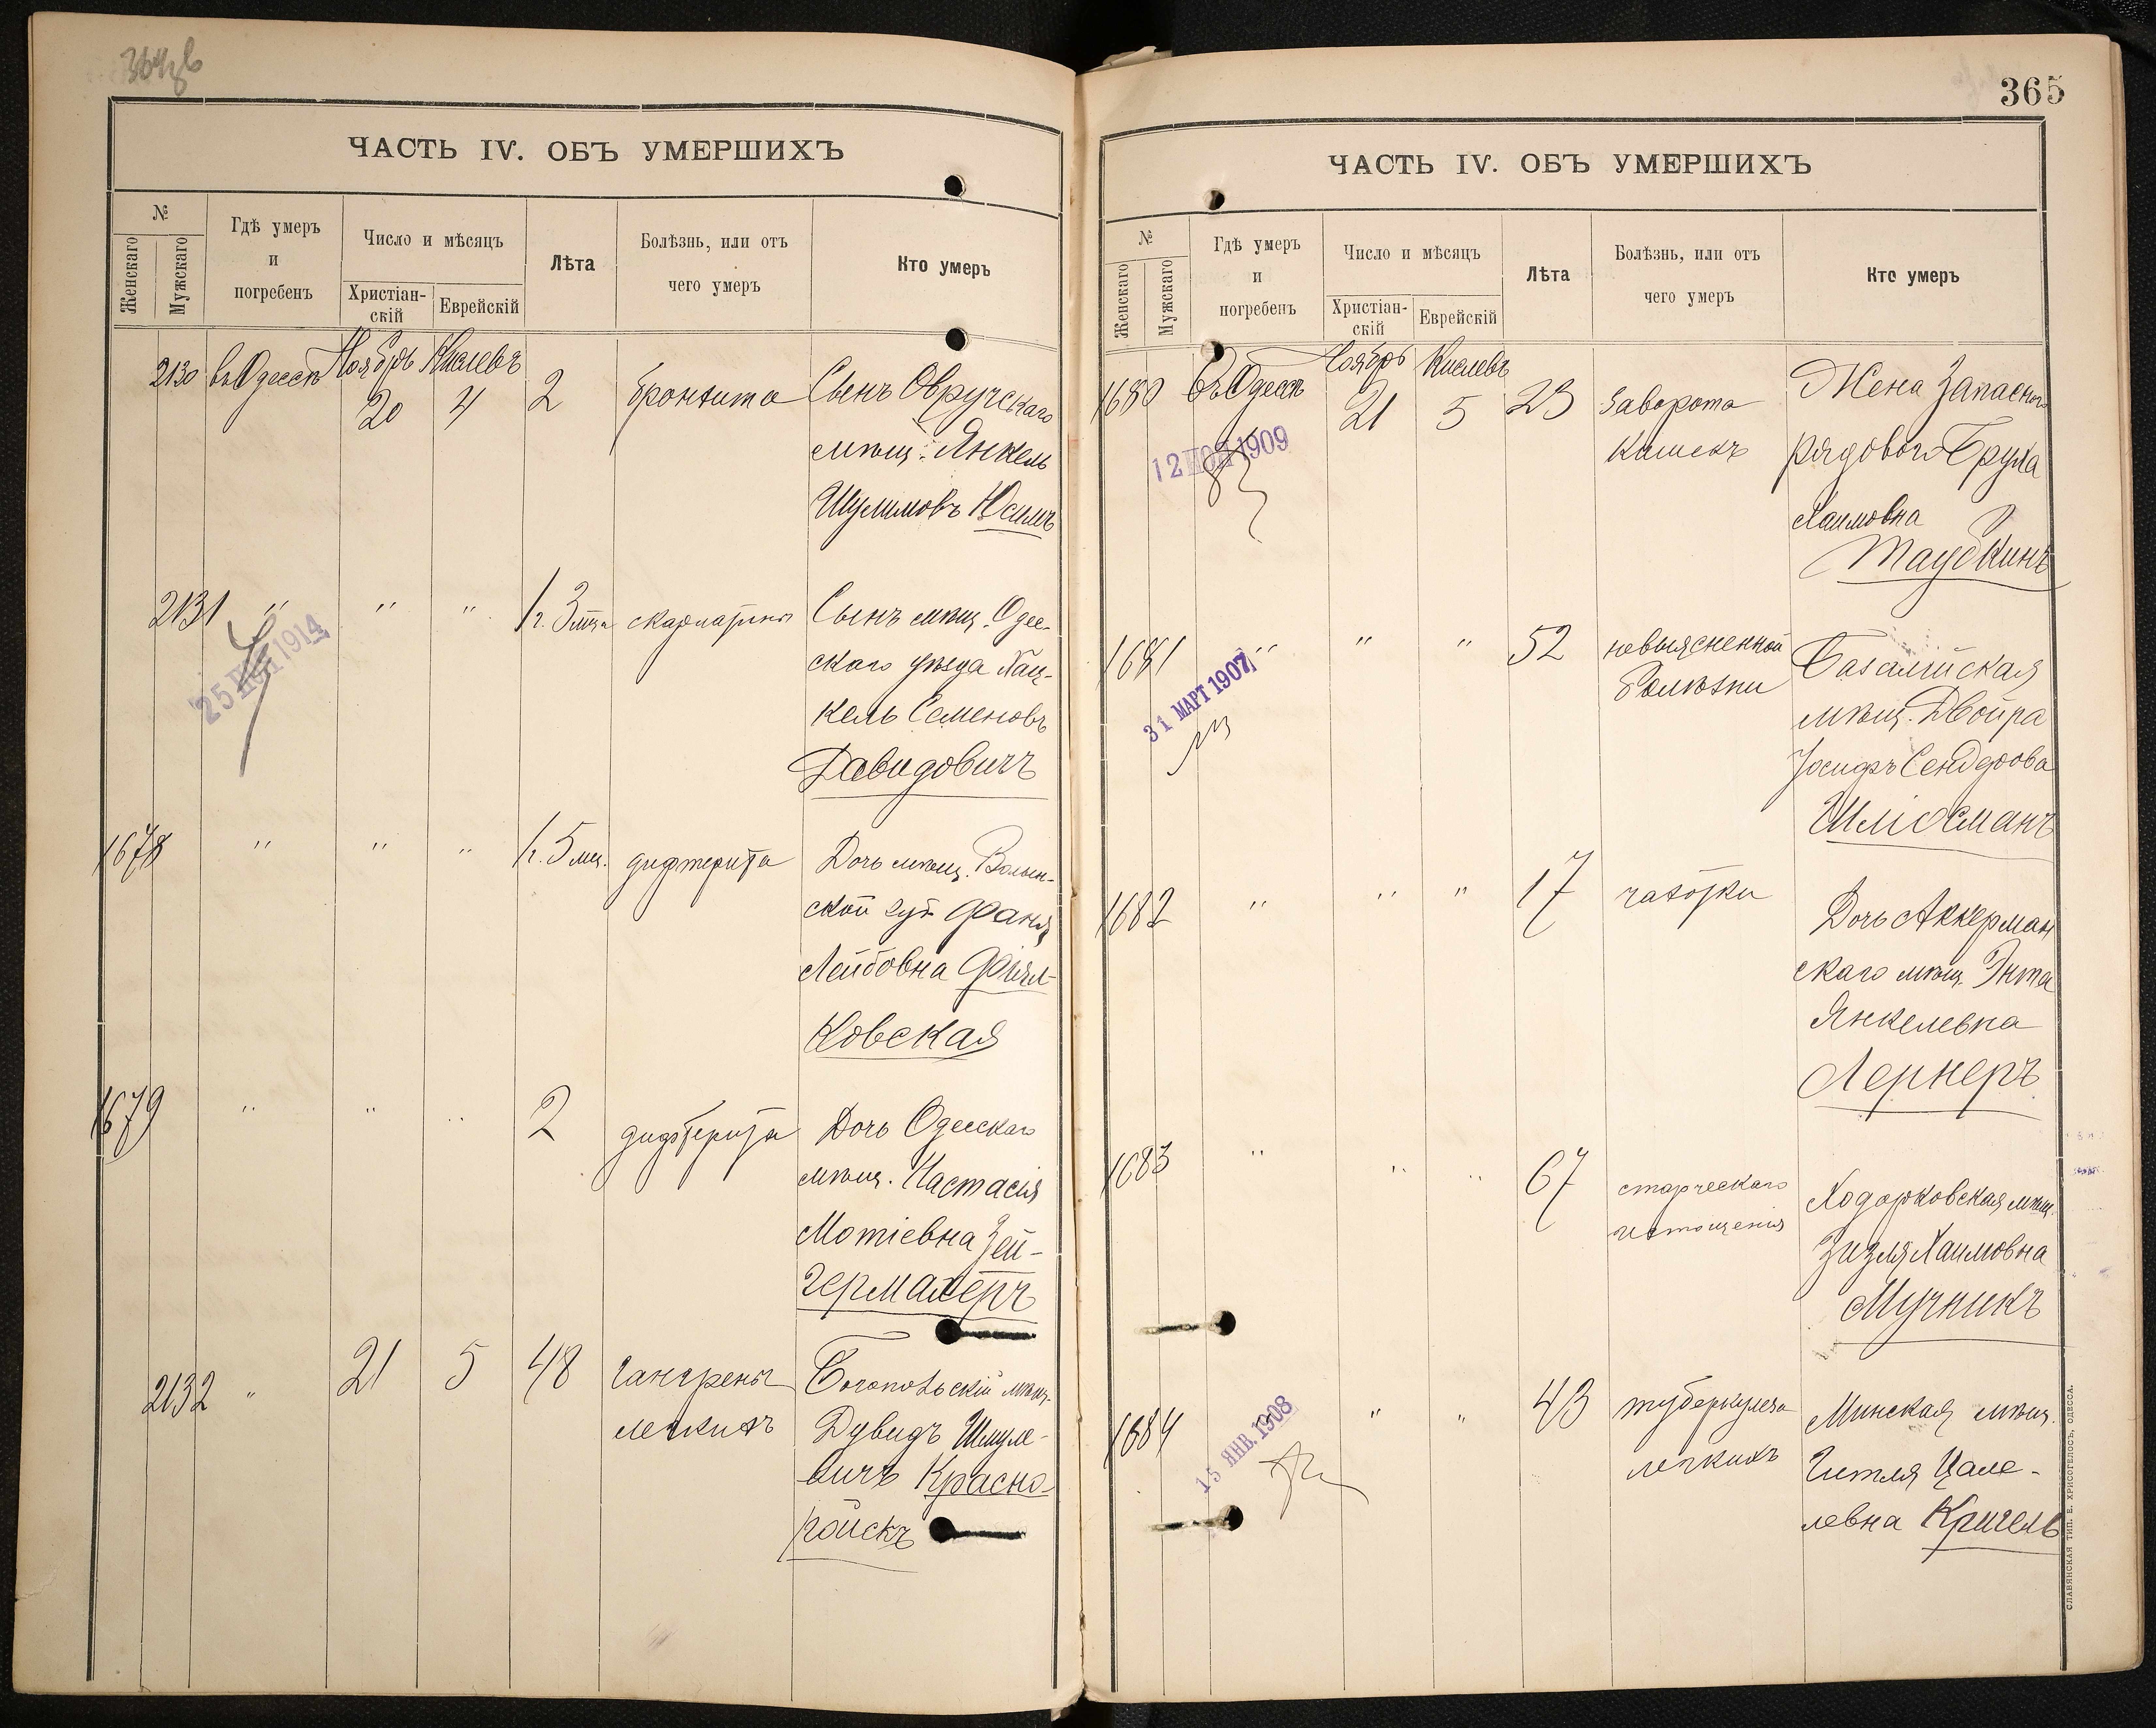 364 об
ЧАСТЬ IV. ОБЪ УМЕРШИХЪ
№
Женскаго
Мужскаго
Гдѣ умеръ
и
погребенъ
Число и мѣсяцъ
Христіан-
скій
Еврейскій
Лѣта
Болѣзнь, или отъ
чего умеръ
Кто умеръ
2130 въ Одессѣ Ноябрь 20 Кислевъ 4 2 бронхита Сынъ Овручскаго
мѣщ. Янкель
Шулимовъ Юсимъ
2131 " " " 1 г. 3 мѣс. скарлатины Сынъ мѣщ. Одес-
скаго уѣзда Хац-
кель Семеновъ
Давидовичъ
25 НОЯ 1914
1678 " " " 1 г. 5 мц. дифтерита Дочь мѣщ. Волын-
ской губ. Фаня
Лейбовна Фиял-
ковская
1679 " " " 2 дифтерита Дочь Одесскаго
мѣщ. Настасія
Мотіевна Зей-
гермахеръ
2132 " 21 5 48 гангрены Богопольскій мѣщ.
легкихъ Дувидъ Шмуле-
вичъ Красно-
гойскъ
365
ЧАСТЬ IV. ОБЪ УМЕРШИХЪ
№
Женскаго
Мужскаго
Гдѣ умеръ
и
погребенъ
Число и мѣсяцъ
Христіан-
скій
Еврейскій
Лѣта
Болѣзнь, или отъ
чего умеръ
Кто умеръ
1680 Въ Одессѣ Ноябрь 21 Кислевъ 5 23 заворота Жена Запаснаго
кишекъ рядового Бруха
Хаимовна
Таубкинъ
12 НОЯ 1909
1681 " " " 52 невыясненной Базалійская
болѣзни мѣщ. Двойра
Іосифъ Сендерова
Шліосманъ
31 МАРТ 1907
1682 " " " 17 чахотки Дочь Аккерман
скаго мѣщ. Энта
Янкелевна
Лернеръ
1683 " " " 67 старческаго Ходорковская мѣщ.
истощенія Зизля Хаимовна
Мучникъ
1684 " " 43 туберкулеза Минская мѣщ.
легкихъ Гитля Цале-
левна Кригель
15 ЯНВ. 1908
СЛАВЯНСКАЯ ТИП. Е. ХРИСОГЕЛОСЪ, ОДЕССА.